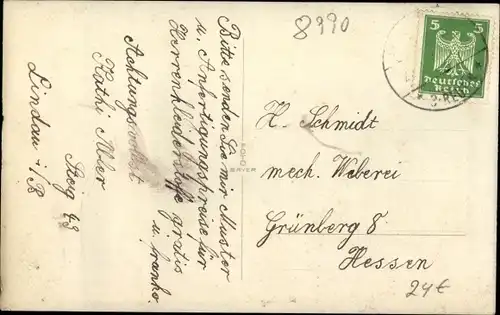 8990
Bitte senden Sie mir Muster
u. Anfertigungspreise für
Herrenkleiderstoffe gratis
u. franko.
Achtungsvollst
Käthi Abler
Steig 49
Lindau i/B
5 5
Deutsches
Reich
H. Schmidt
mech. Weberei
Grünberg 8
Hessen
24€
FOTO
BAYER